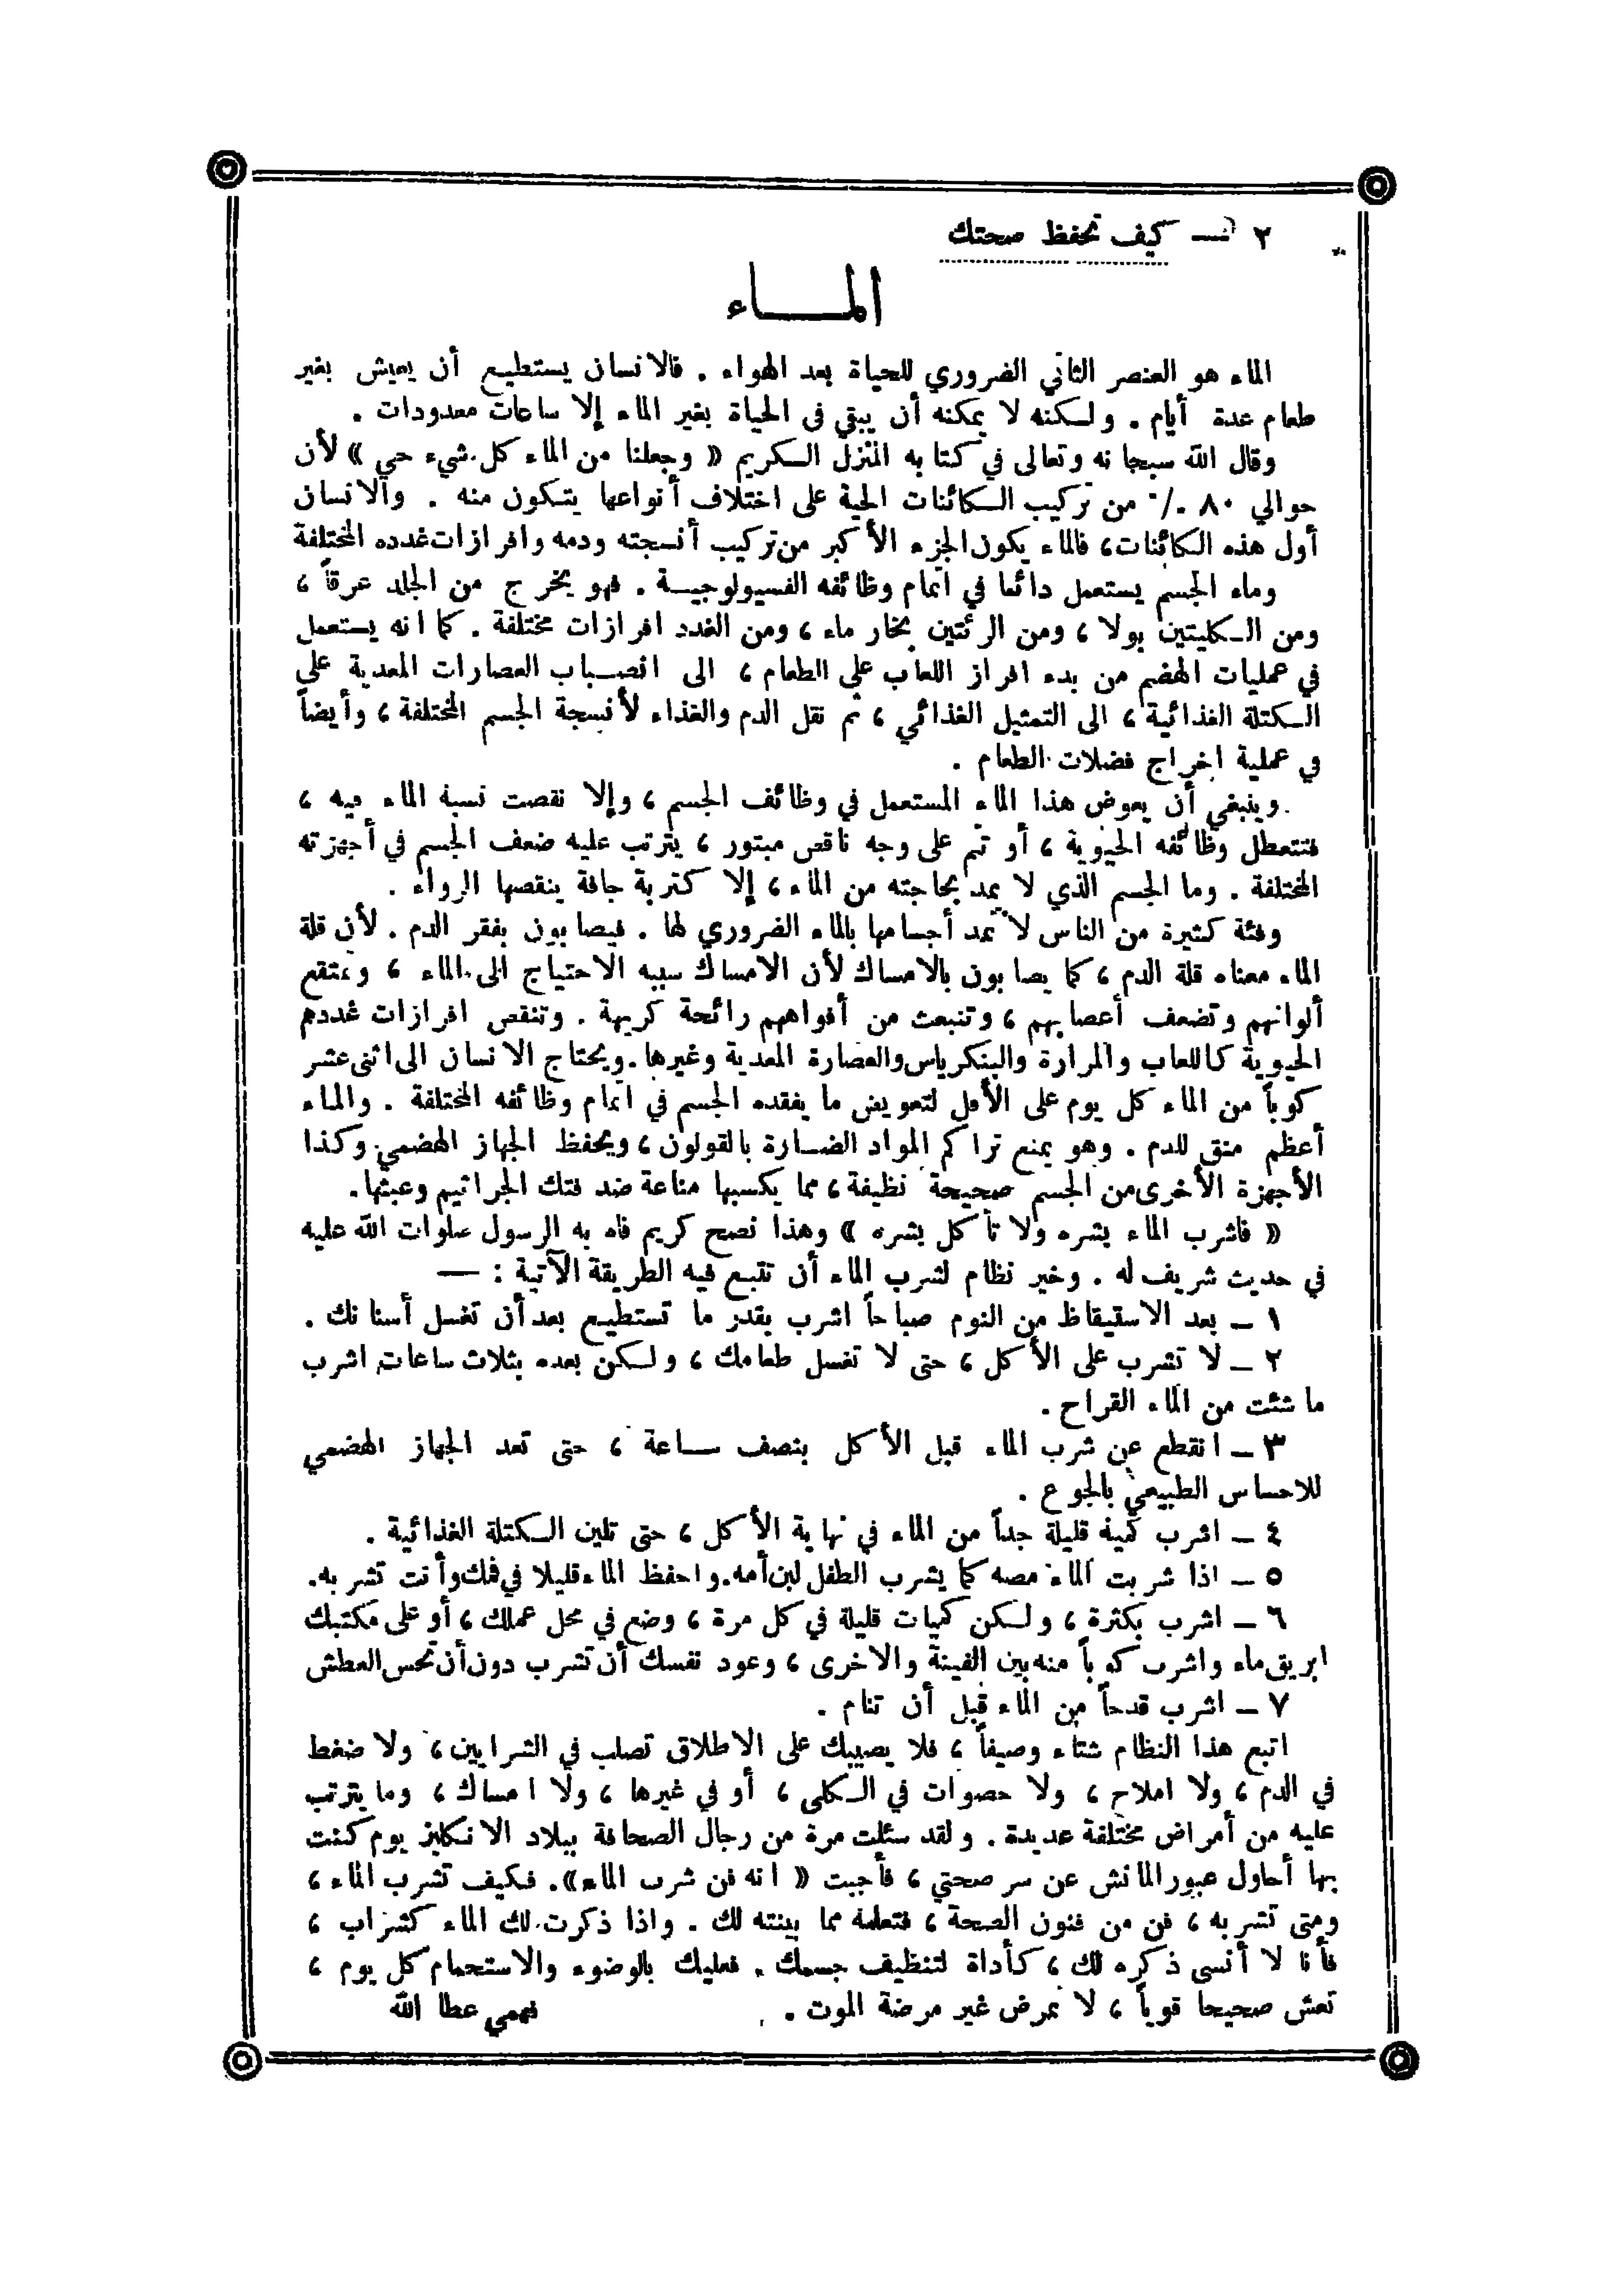 ٢ — كيف تحفظ صحتك
الماء
الماء هو العنصر الثاني الضروري للحياة بعد الهواء . فالانسان يستطيع أن يعيش بغير
طعام عدة أيام . ولكنه لا يمكنه أن يبقى فى الحياة بغير الماء إلا ساعات معدودات .
وقال الله سبحانه وتعالى في كتابه المنزل الكريم « وجعلنا من الماء كل شيء حي » لأن
حوالي ٨٠ ٪ من تركيب الكائنات الحية على اختلاف أنواعها يتكون منه . والانسان
أول هذه الكائنات ، فالماء يكون الجزء الأكبر من تركيب أنسجته ودمه وافرازات غدده المختلفة
وماء الجسم يستعمل دائما في اتمام وظائفه الفسيولوجية . فهو يخرج من الجلد عرقاً ،
ومن الكليتين بولا ، ومن الرئتين بخار ماء ، ومن الغدد افرازات مختلفة . كما انه يستعمل
في عمليات الهضم من بدء افراز اللعاب على الطعام ، الى انصباب العصارات المعدية على
الكتلة الغذائية ، الى التمثيل الغذائي ، ثم نقل الدم والغذاء لأنسجة الجسم المختلفة ، وأيضاً
في عملية اخراج فضلات الطعام .
وينبغي أن يعوض هذا الماء المستعمل في وظائف الجسم ، وإلا نقصت نسبة الماء فيه ،
فتتعطل وظائفه الحيوية ، أو تتم على وجه ناقص مبتور ، يترتب عليه ضعف الجسم في أجهزته
المختلفة . وما الجسم الذي لا يمد بحاجته من الماء ، إلا كتربة جافة ينقصها الرواء .
وفئة كثيرة من الناس لا تمد أجسامها بالماء الضروري لها . فيصابون بفقر الدم . لأن قلة
الماء معناه قلة الدم ، كما يصابون بالامساك لأن الامساك سببه الاحتياج الى الماء ، وتمتقع
ألوانهم وتضعف أعصابهم ، وتنبعث من أفواههم رائحة كريهة . وتنقص افرازات غددهم
الحيوية كاللعاب والمرارة والبنكرياس والعصارة المعدية وغيرها . ويحتاج الانسان الى اثنى عشر
كوباً من الماء كل يوم على الأقل لتعويض ما يفقده الجسم في اتمام وظائفه المختلفة . والماء
أعظم منق للدم . وهو يمنع تراكم المواد الضارة بالقولون ، ويحفظ الجهاز الهضمي وكذا
الأجهزة الأخرى من الجسم صحيحة نظيفة ، مما يكسبها مناعة ضد فتك الجراثيم وعبثها .
« فاشرب الماء بشره ولا تأكل بشره » وهذا نصح كريم فاه به الرسول صلوات الله عليه
في حديث شريف له . وخير نظام لشرب الماء أن تتبع فيه الطريقة الآتية : —
١ — بعد الاستيقاظ من النوم صباحاً اشرب بقدر ما تستطيع بعد أن تغسل أسنانك .
٢ — لا تشرب على الأكل ، حتى لا تغسل طعامك ، ولكن بعده بثلاث ساعات اشرب
ما شئت من الماء القراح .
٣ — انقطع عن شرب الماء قبل الأكل بنصف ساعة ، حتى تعد الجهاز الهضمي
للاحساس الطبيعي بالجوع .
٤ — اشرب كمية قليلة جداً من الماء في نهاية الأكل ، حتى تلين الكتلة الغذائية .
٥ — اذا شربت الماء مصه كما يشرب الطفل لبن أمه . واحفظ الماء قليلا في فمك وأنت تشربه .
٦ — اشرب بكثرة ، ولكن كميات قليلة في كل مرة ، وضع في محل عملك ، أو على مكتبك
ابريق ماء واشرب كوباً منه بين الفينة والاخرى ، وعود نفسك أن تشرب دون أن تحس العطش
٧ — اشرب قدحاً من الماء قبل أن تنام .
اتبع هذا النظام شتاء وصيفاً ، فلا يصيبك على الاطلاق تصلب في الشرايين ، ولا ضغط
في الدم ، ولا املاح ، ولا حصوات في الكلى ، أو في غيرها ، ولا امساك ، وما يترتب
عليه من أمراض مختلفة عديدة . ولقد سئلت مرة من رجال الصحافة ببلاد الانكليز يوم كنت
بها أحاول عبور المانش عن سر صحتي ، فأجبت « انه فن شرب الماء » . فكيف تشرب الماء ،
ومتى تشربه ، فن من فنون الصحة ، فتعلمه مما بينته لك . واذا ذكرت لك الماء كشراب ،
فأنا لا أنسى ذكره لك ، كأداة لتنظيف جسمك . فعليك بالوضوء والاستحمام كل يوم ،
تعش صحيحا قوياً ، لا تمرض غير مرضة الموت . فهمي عطا الله